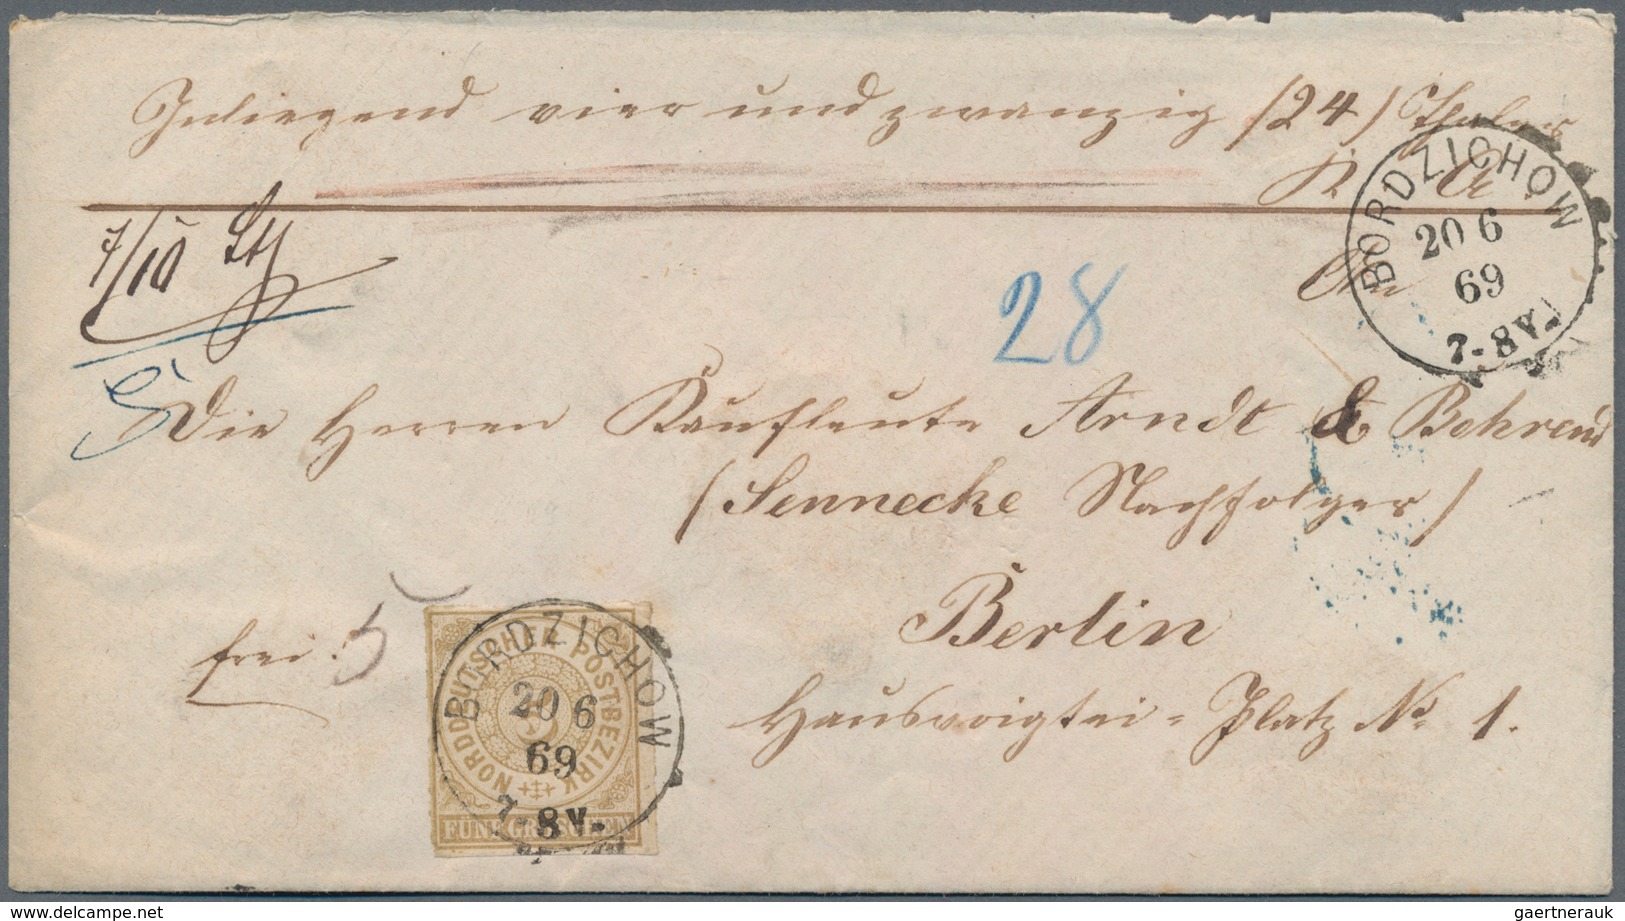 Inliegend vier und zwanzig (24) Thaler
K. A.
BORDZICHOW
20 6
69
7-8V.
7/10 Lth
An
28
5
Die Herren Kaufleute Arndt & Behrend
(Sennecke Nachfolger)
Berlin
frei 5
Hausvoigtei-Platz No 1.
NORDDEUTSCHER POSTBEZIRK
FÜNF GROSCHEN
BORDZICHOW
20 6
69
7-8V.
www.delcampe.net
gaertnerauk